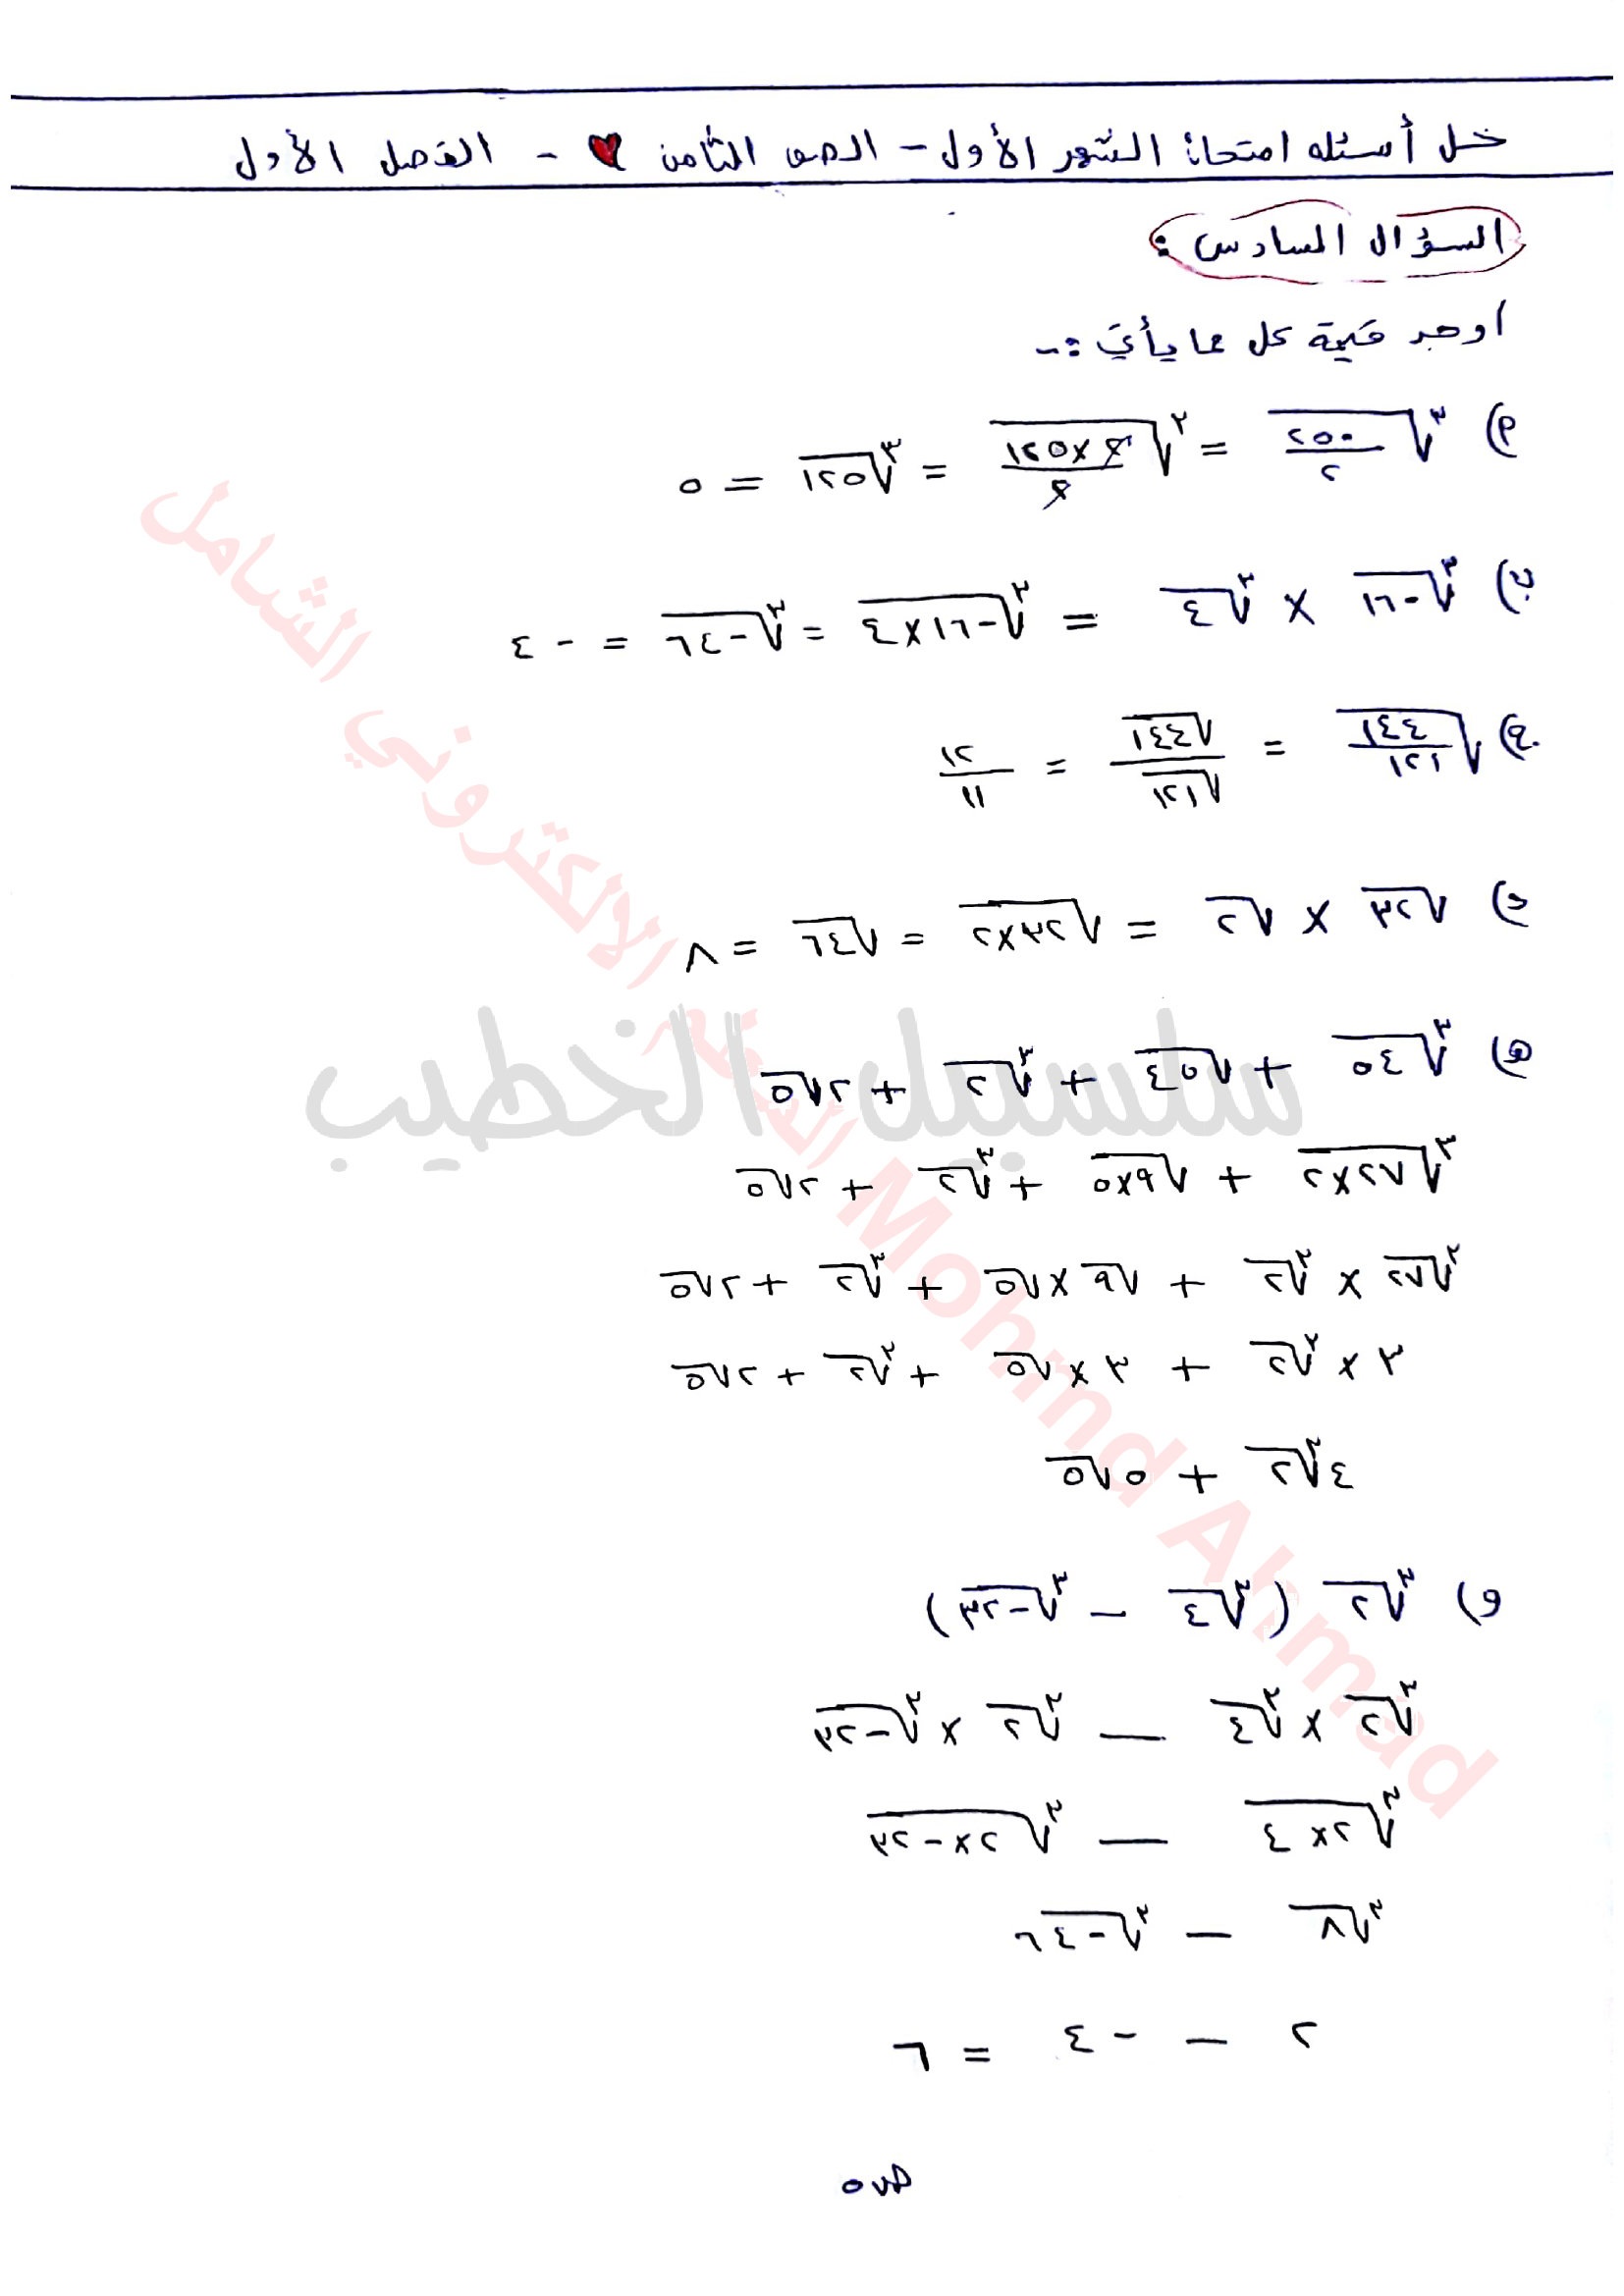 حل أسئلة امتحان الشهر الأول - الصف الثامن ♥ - الفصل الأول
السؤال السادس:
اوجد قيمة كل مما يأتي :-
أ) ∛(٢٥٠/٢) = ∛(٢×١٢٥/٢) = ∛١٢٥ = ٥
ب) ∛-١٦ × ∛٤ = ∛(-١٦×٤) = ∛-٦٤ = -٤
ج) √(١٤٤/١٢١) = √١٤٤/√١٢١ = ١٢/١١
د) √٣٢ × √٢ = √(٣٢×٢) = √٦٤ = ٨
هـ) ∛٥٤ + √٤٥ + ∛٢ + ٢√٥
∛(٢٧×٢) + √(٩×٥) + ∛٢ + ٢√٥
∛٢٧ × ∛٢ + √٩ × √٥ + ∛٢ + ٢√٥
٣ × ∛٢ + ٣ × √٥ + ∛٢ + ٢√٥
٤∛٢ + ٥√٥
و) ∛٢ (∛٤ - ∛-٣٢)
∛٢ × ∛٤ - ∛٢ × ∛-٣٢
∛(٢×٤) - ∛(٢×-٣٢)
∛٨ - ∛-٦٤
٢ - -٤ = ٦
سلسبيل الخطيب
الموقع الالكتروني الشامل Mohmd Ahmad